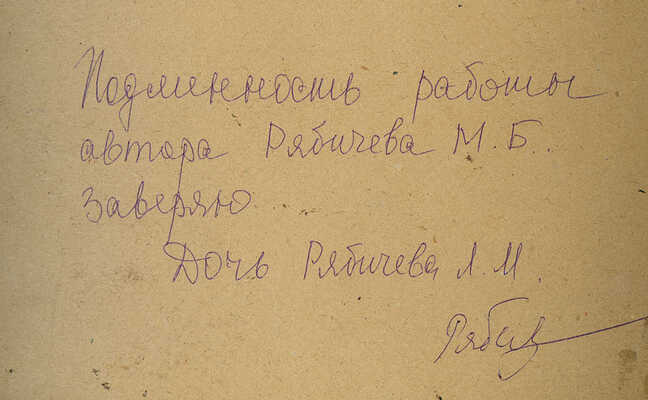 Подлинность работы
автора Рябичева М.Б.
заверяю
Дочь Рябичева Л.М.